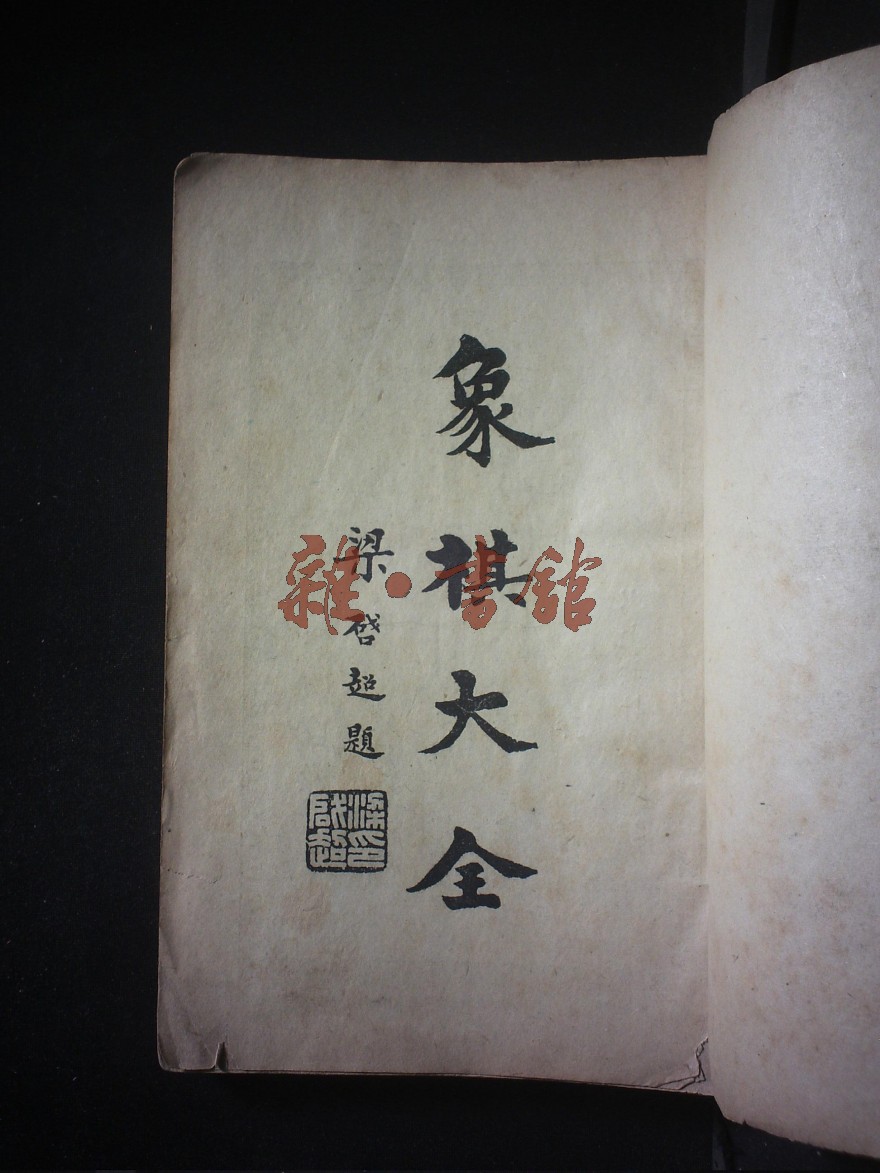 象棋大全
梁啓超題
梁啓超印
雜·書館